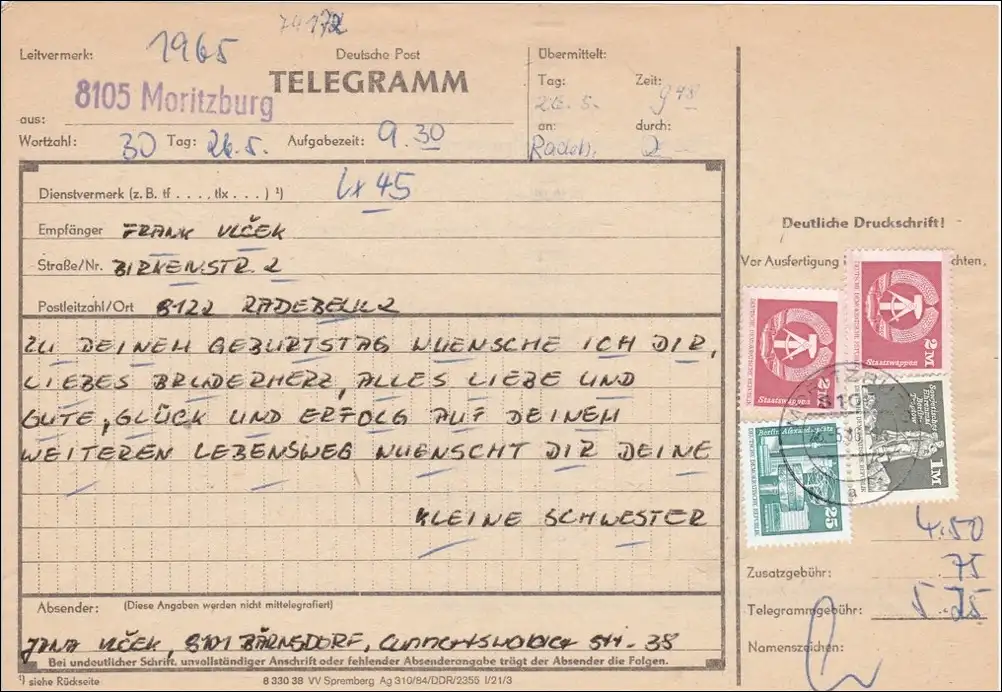 74172
Leitvermerk: 1965
Deutsche Post
TELEGRAMM
8105 Moritzburg
aus:
Wortzahl: 30 Tag: 26.5. Aufgabezeit: 9.30
Übermittelt:
Tag: Zeit:
26.5. 9 48
an: durch:
Radeb.
Dienstvermerk (z. B. tf . . . ., tlx . . . ) ¹) Lx 45
Empfänger FRANK VLČEK
Straße/Nr. BIRKENSTR. 2
Postleitzahl/Ort 8122 RADEBEUL 2
ZU DEINEM GEBURTSTAG WUENSCHE ICH DIR,
LIEBES BRUDERHERZ, ALLES LIEBE UND
GUTE, GLÜCK UND ERFOLG AUF DEINEM
WEITEREN LEBENSWEG WUENSCHT DIR DEINE
KLEINE SCHWESTER
Absender: (Diese Angaben werden nicht mittelegrafiert)
JANA VLČEK, 8101 BÄRNSDORF, STR. 38
Bei undeutlicher Schrift, unvollständiger Anschrift oder fehlender Absenderangabe trägt der Absender die Folgen.
¹) siehe Rückseite
8 330 38 VV Spremberg Ag 310/84/DDR/2355 I/21/3
Deutliche Druckschrift!
Vor Ausfertigung chten,
DEUTSCHE DEMOKRATISCHE REPUBLIK
Staatswappen
2M
DEUTSCHE DEMOKRATISCHE REPUBLIK
Staatswappen
2M
Sowjetisches Ehrenmal Berlin-Treptow
DEUTSCHE DEMOKRATISCHE REPUBLIK
1M
Berlin, Alexanderplatz
DEUTSCHE DEMOKRATISCHE REPUBLIK
25
4.50
Zusatzgebühr: 75
Telegrammgebühr: 5.25
Namenszeichen: